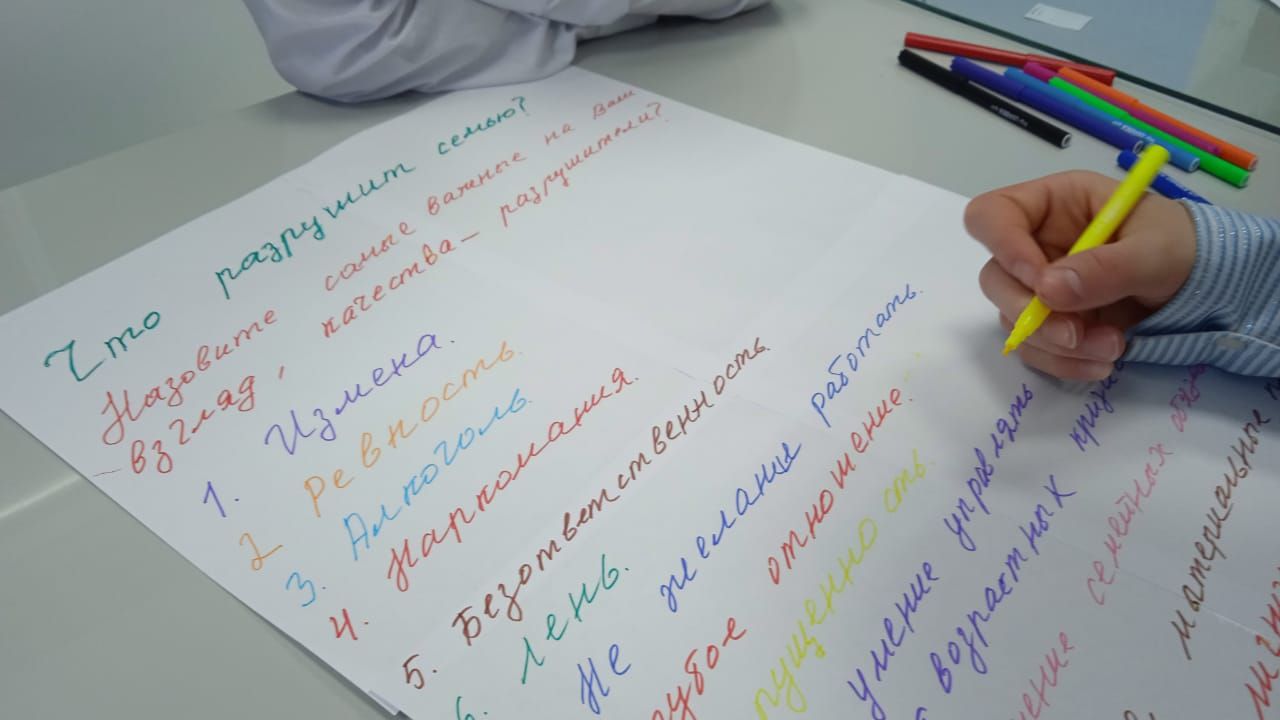 Что разрушит семью?
Назовите самые важные на Ваш
взгляд, качества- разрушители?
1. Измена.
2 Ревность.
3. Алкоголь.
4. Наркомания.
5. Безответственность.
6. Лень.
Не желание работать.
отношение.
умение управлять
возрастных
семейных
материальные